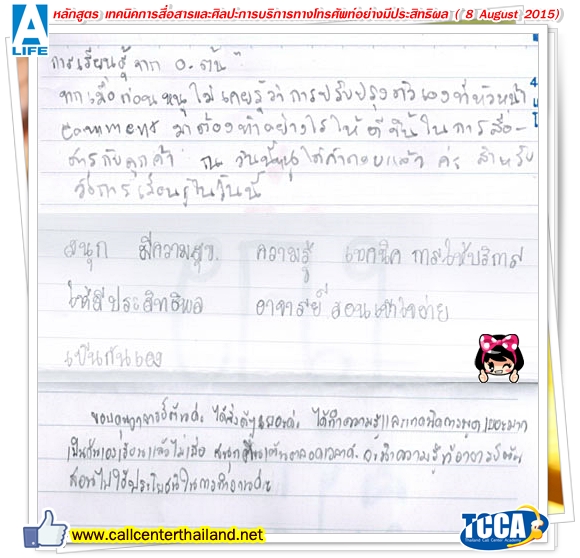 หลักสูตร เทคนิคการสื่อสารและศิลปะการบริการทางโทรศัพท์อย่างมีประสิทธิผล ( 8 August 2015)
A
LIFE
การเรียนรู้จาก อ.ต้น
จากเมื่อก่อนหนูไม่เคยรู้ว่าการปรับปรุงตัวเองที่หัวหน้า
comment มาต้องทำอย่างไรให้ดีขึ้นในการสื่อ-
สารกับลูกค้า ณ วันนี้หนูได้คำตอบแล้ว ค่ะ สำหรับ
วิธีการเรียนรู้ในวันนี้
สนุก มีความสุข ความรู้ เทคนิค การให้บริการ
ให้มีประสิทธิผล อาจารย์สอนเข้าใจง่าย
เป็นกันเอง
ขอบคุณอาจารย์ต้นค่ะ ได้สิ่งดีๆเยอะค่ะ ได้ทั้งความรู้และเทคนิคการพูดเยอะมาก
เป็นกันเองเรียนแล้วไม่เบื่อ สนุกตื่นเต้นตลอดเวลาค่ะ จะนำความรู้ที่อาจารย์ต้น
สอนไปใช้ประโยชน์ในการทำงานค่ะ
www.callcenterthailand.net
TCCA
Thailand Call Center Academy